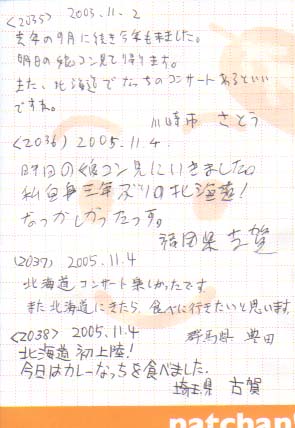 <2035> 2005.11.2
去年の9月に続き今年も来ました。
明日の娘コン見て帰ります。
また、北海道でなっちのコンサートあるといい
ですね。
川崎市 さとう
<2036> 2005.11.4.
昨日の娘コン見にいきました。
私自身三年ぶりの北海道!
なつかしかったっす。
福岡県 古賀
<2037> 2005.11.4
北海道コンサート楽しかったです
また北海道にきたら、食べに行きたいと思います。
群馬県 奥田
<2038> 2005.11.4
北海道 初上陸!
今日はカレーなっちを食べました.
埼玉県 古賀
patchan